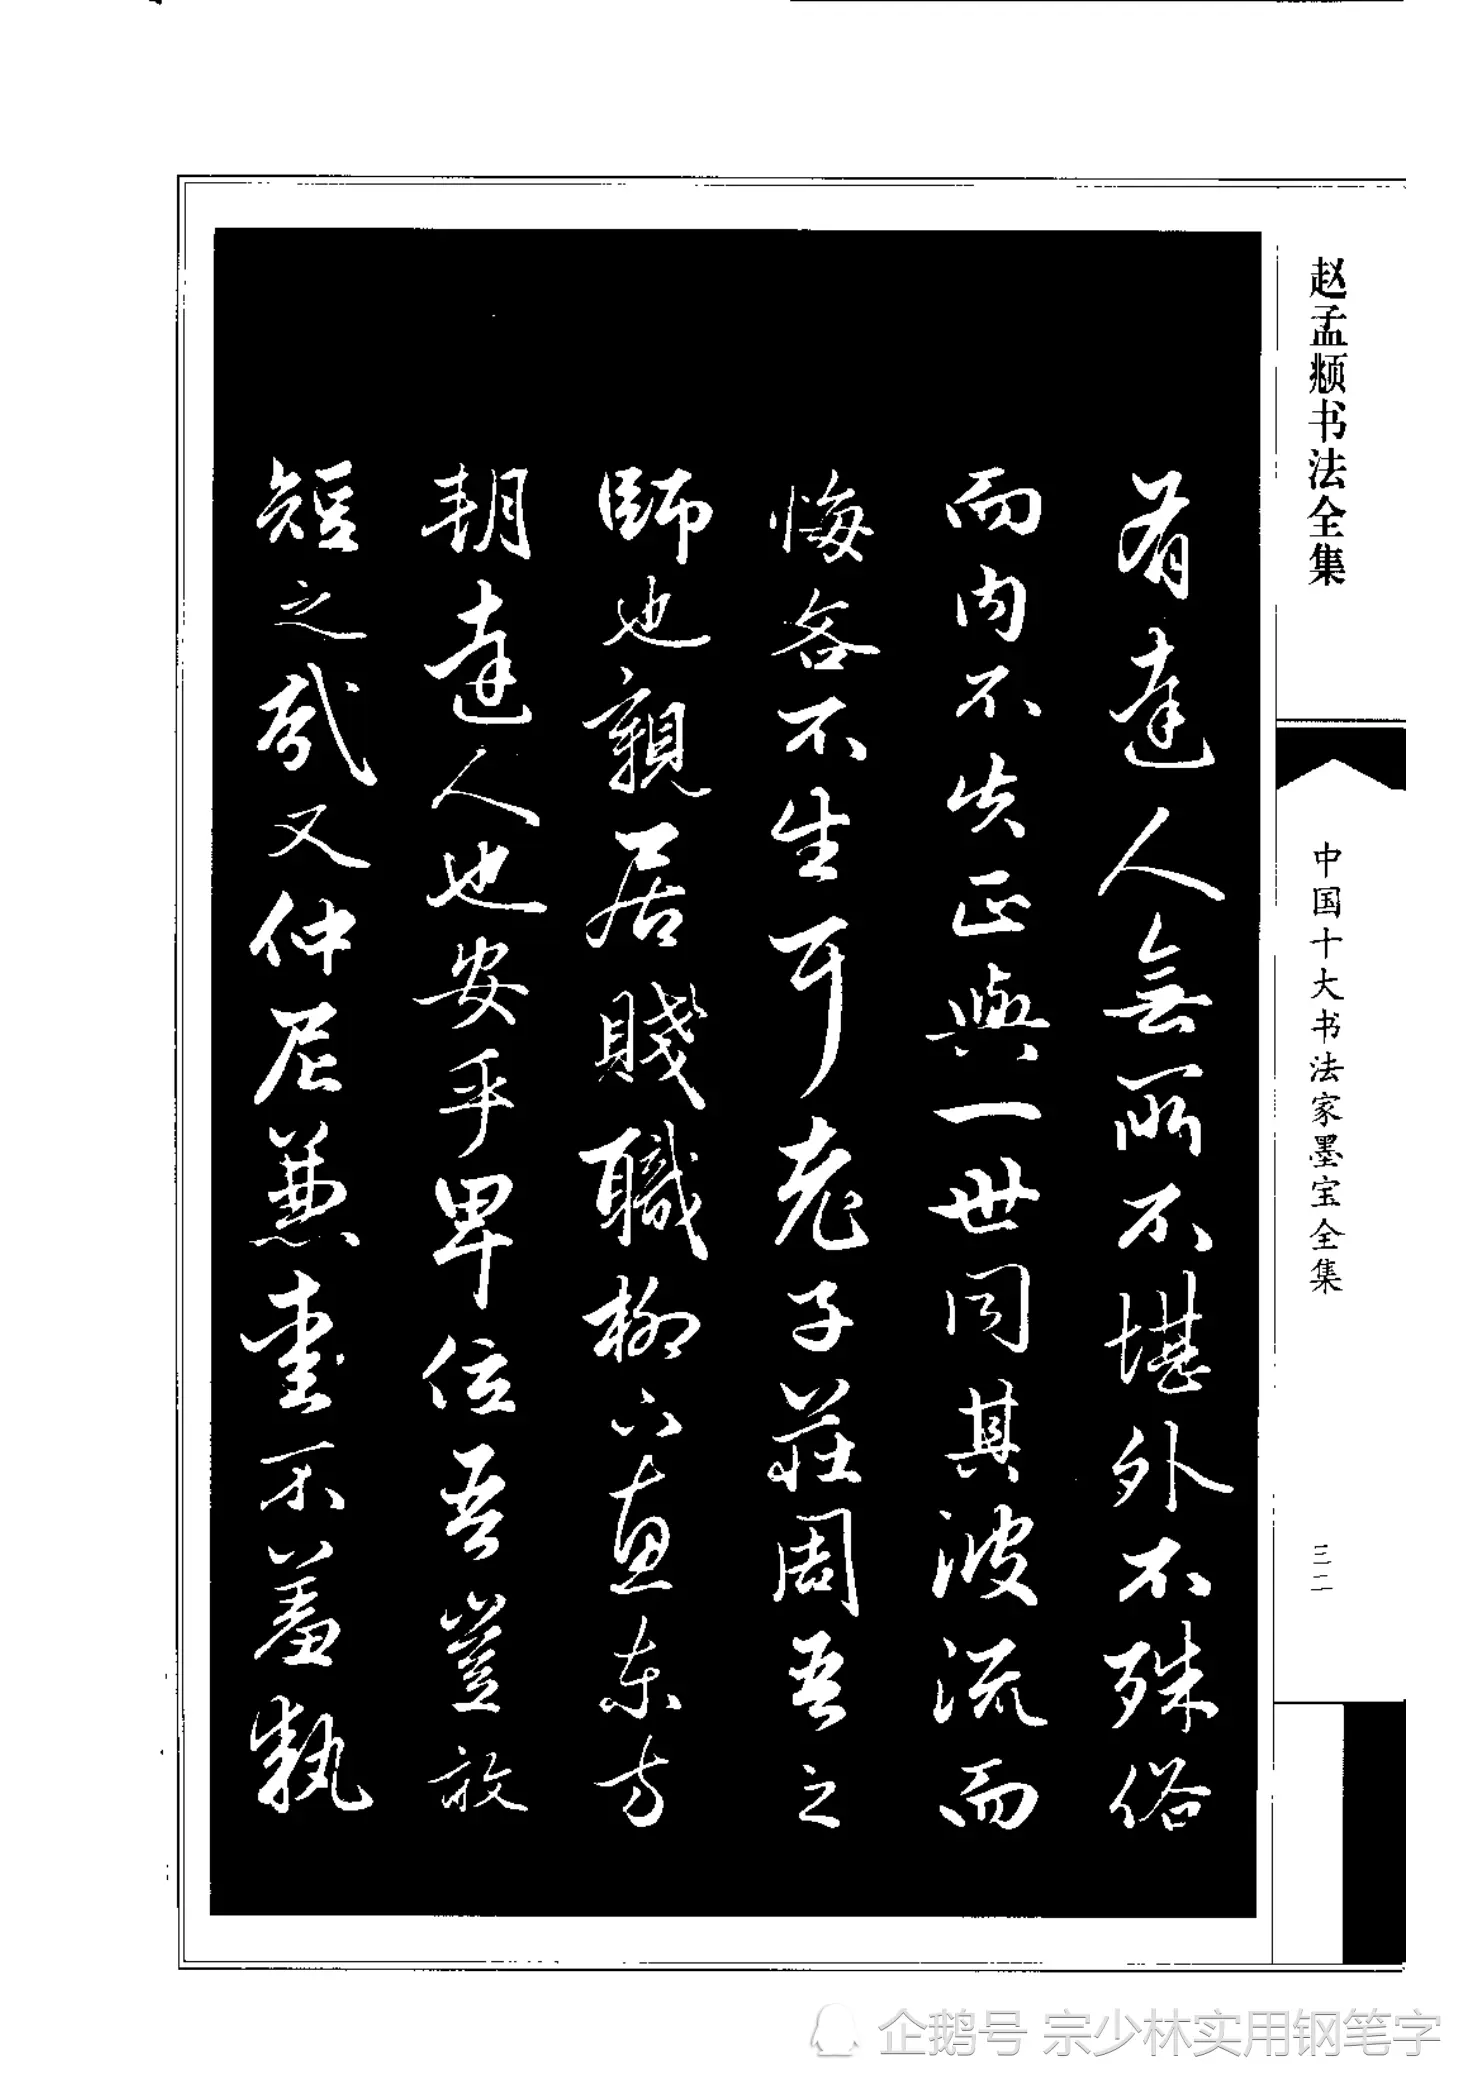 赵孟頫书法全集
中国十大书法家墨宝全集
三二
有達人無所不堪外不殊俗
而内不失正與一世同其波流而
悔吝不生耳老子莊周吾之
師也親居賤職柳下惠東方
朝達人也安乎卑位吾豈敢
短之哉又仲尼兼愛不羞執
企鹅号 宗少林实用钢笔字